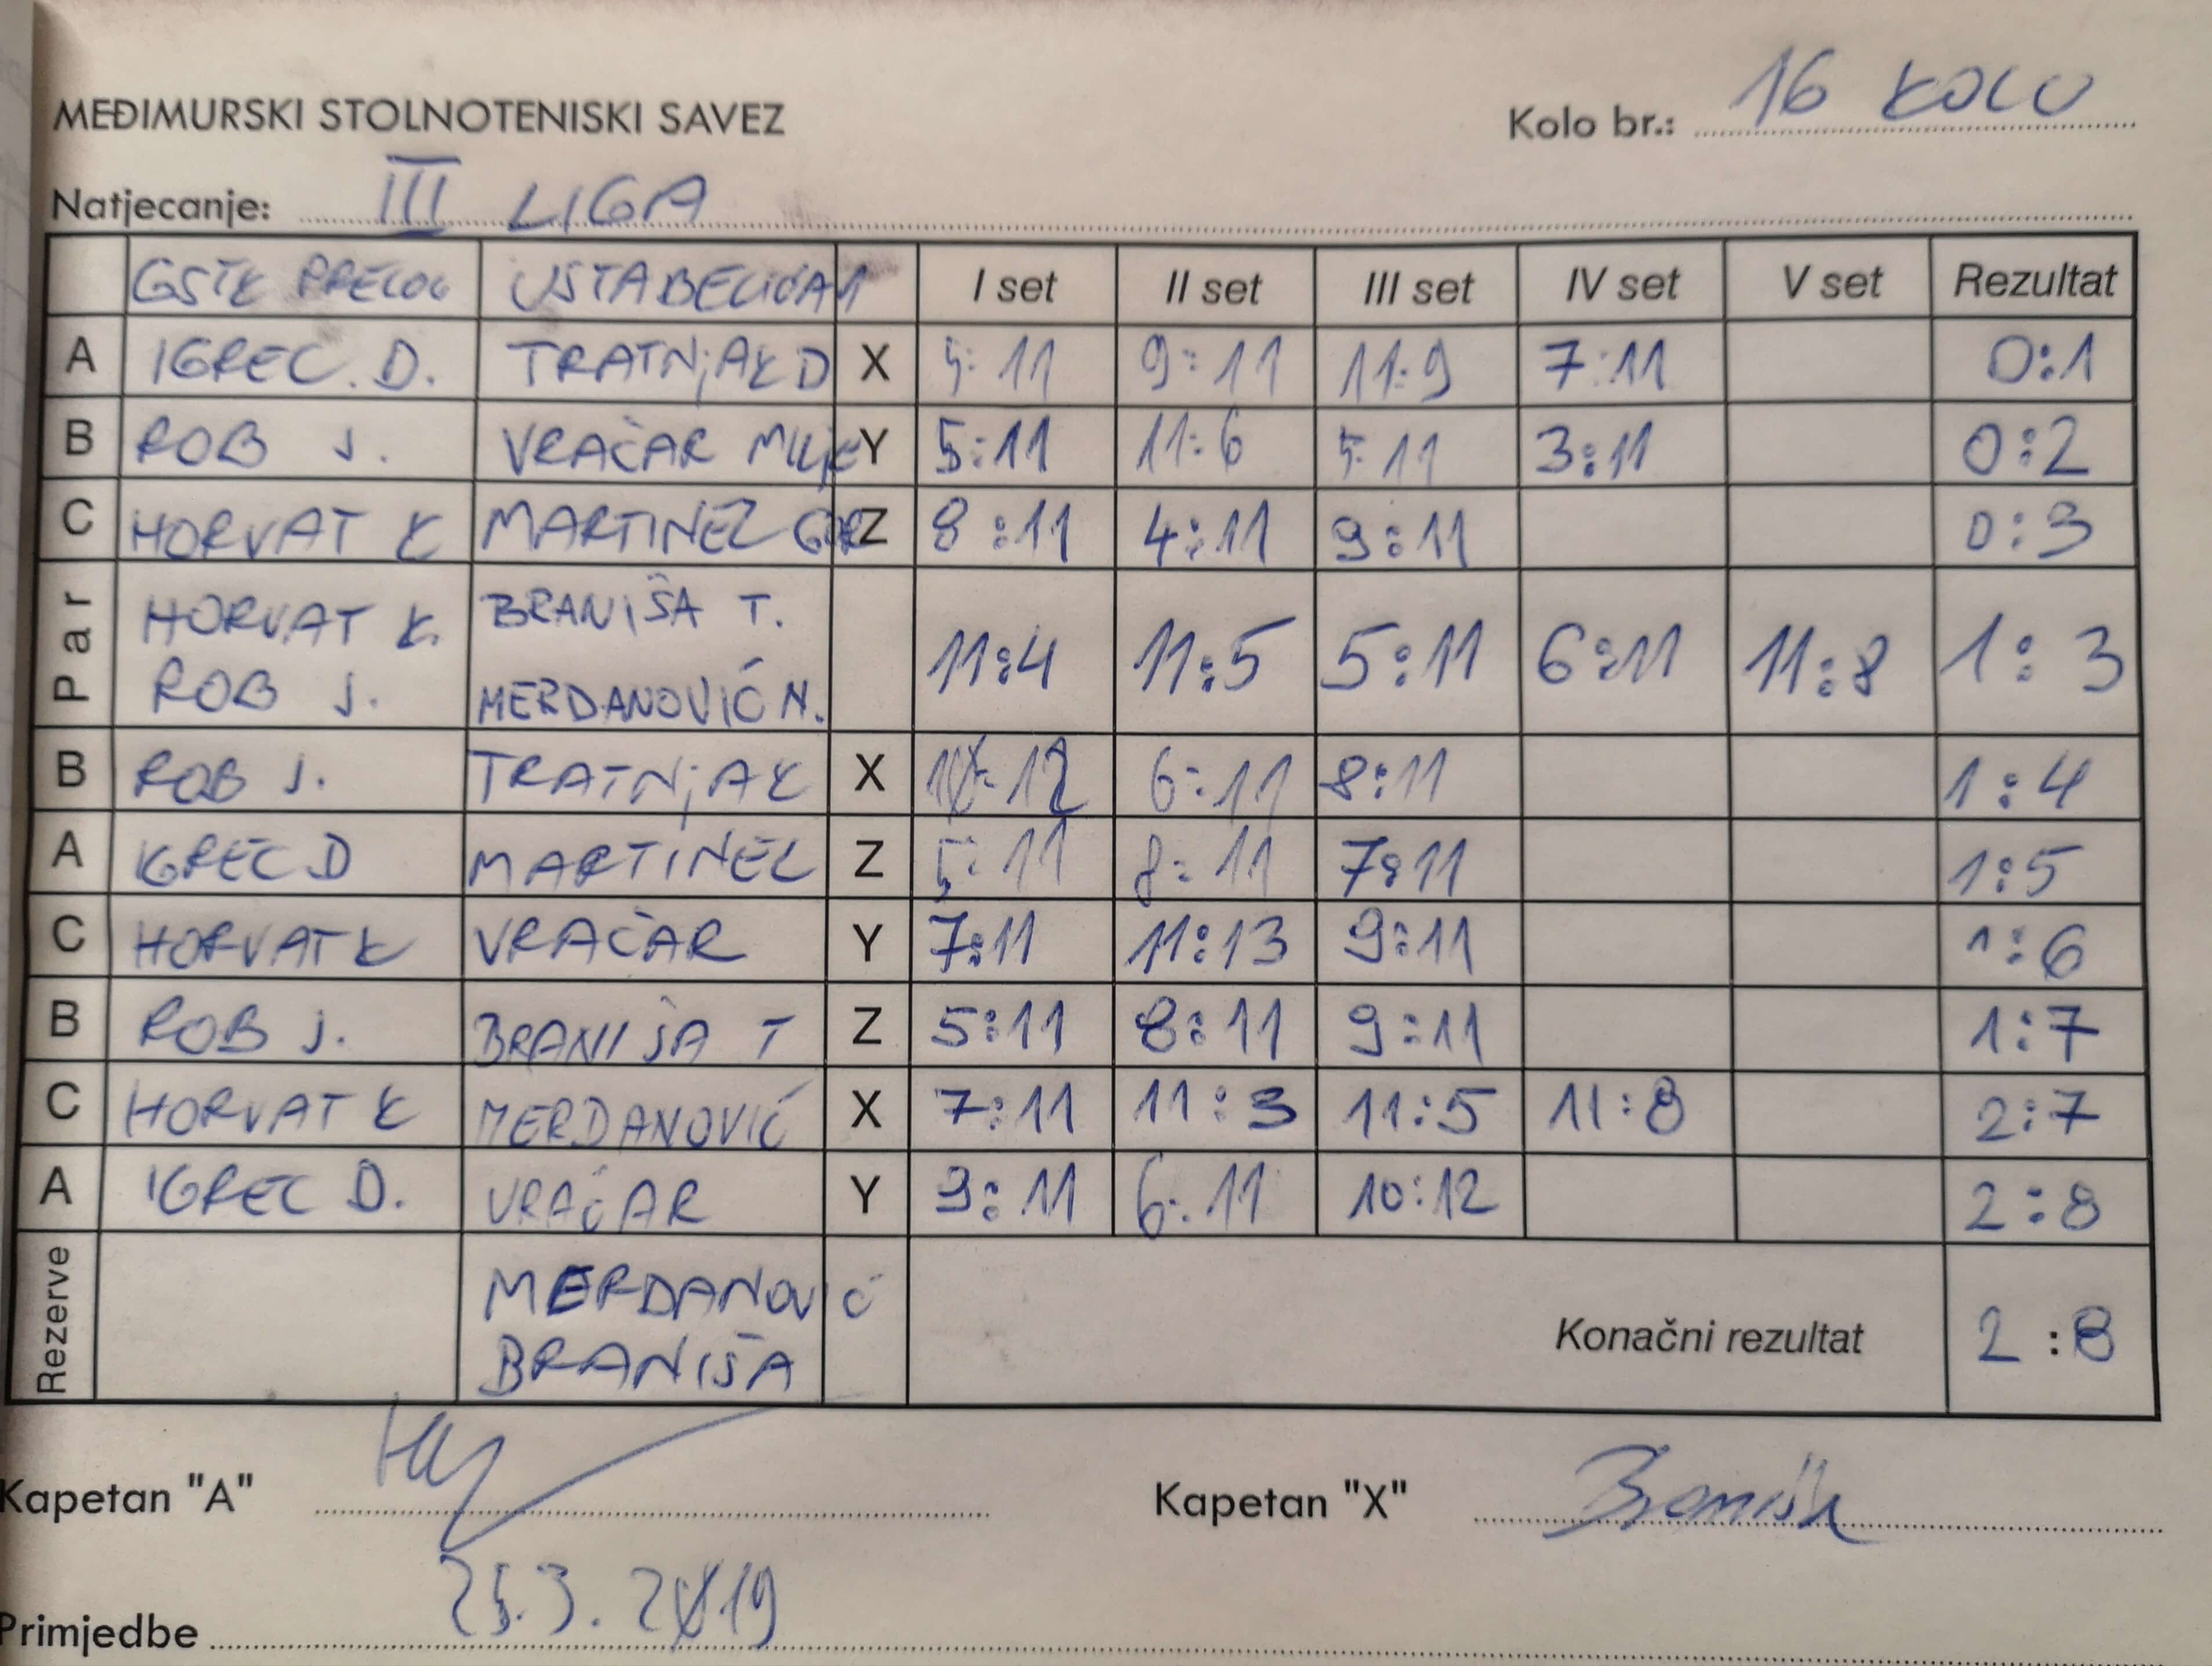 MEĐIMURSKI STOLNOTENISKI SAVEZ
Kolo br.: 16 KOLO
Natjecanje: III LIGA
GSTK PRELOG USTABELIČA 1 I set II set III set IV set V set Rezultat
A IGREC. D. TRATNjAK D X 5:11 9:11 11:9 7:11 0:1
B ROB J. VRAČAR MILJE Y 5:11 11:6 5:11 3:11 0:2
C HORVAT K MARTINEZ GOR Z 8:11 4:11 9:11 0:3
Par HORVAT K. BRANIŠA T. 11:4 11:5 5:11 6:11 11:8 1:3
ROB J. MERDANOVIĆ N.
B ROB J. TRATNjAK X 10:12 6:11 8:11 1:4
A IGREC D MARTINEZ Z 5:11 8:11 7:11 1:5
C HORVAT K VRAČAR Y 7:11 11:13 9:11 1:6
B ROB J. BRANIŠA T Z 5:11 8:11 9:11 1:7
C HORVAT K MERDANOVIĆ X 7:11 11:3 11:5 11:8 2:7
A IGREC D. VRAČAR Y 9:11 6:11 10:12 2:8
Rezerve MERDANOVIĆ
BRANIŠA
Konačni rezultat 2:8
Kapetan "A" Kapetan "X" Braniša
25.3.2019
Primjedbe